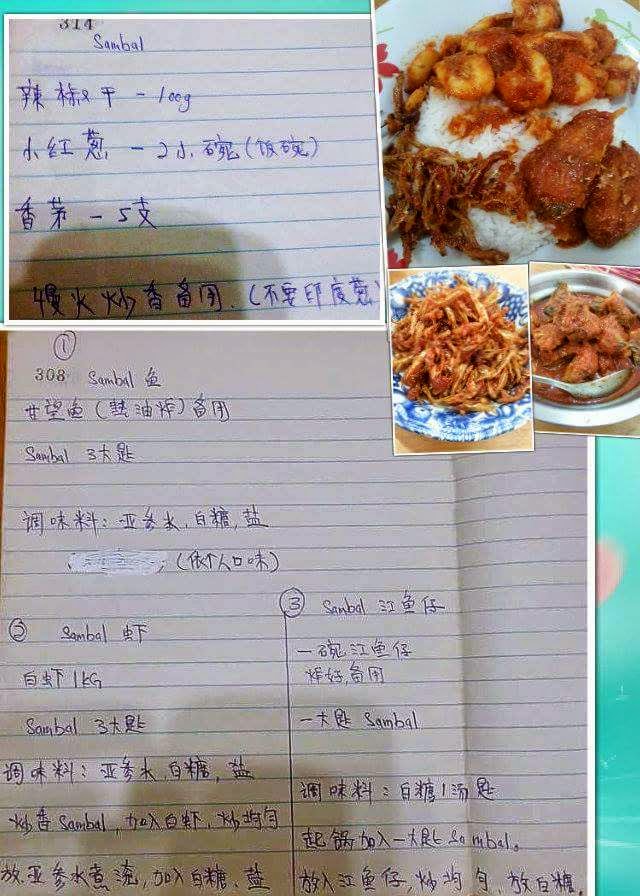 314
Sambal
辣椒干 - 100g
小红葱 - 2小碗(饭碗)
香茅 - 5支
慢火炒香备用.(不要印度葱)
①
308 Sambal 鱼
甘望鱼(热油炸)备用
Sambal 3大匙
调味料: 亚参水, 白糖, 盐
(依个人口味)
② Sambal 虾
白虾 1KG
Sambal 3大匙
调味料: 亚参水, 白糖, 盐
炒香Sambal, 加入白虾, 炒均匀
放亚参水煮滚, 加入白糖, 盐
③ Sambal 江鱼仔
一碗江鱼仔
炸好, 备用
一大匙 Sambal
调味料: 白糖1汤匙
起锅加入一大匙Sambal。
放入江鱼仔, 炒均匀, 放白糖.